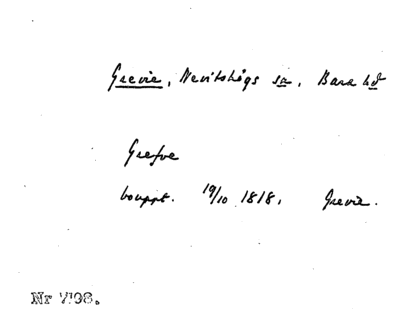 Greevie, Nevishögs sn, Bara hd
Greefve
bouppt. 19/10 1818. Grevie.
Nr 7198.